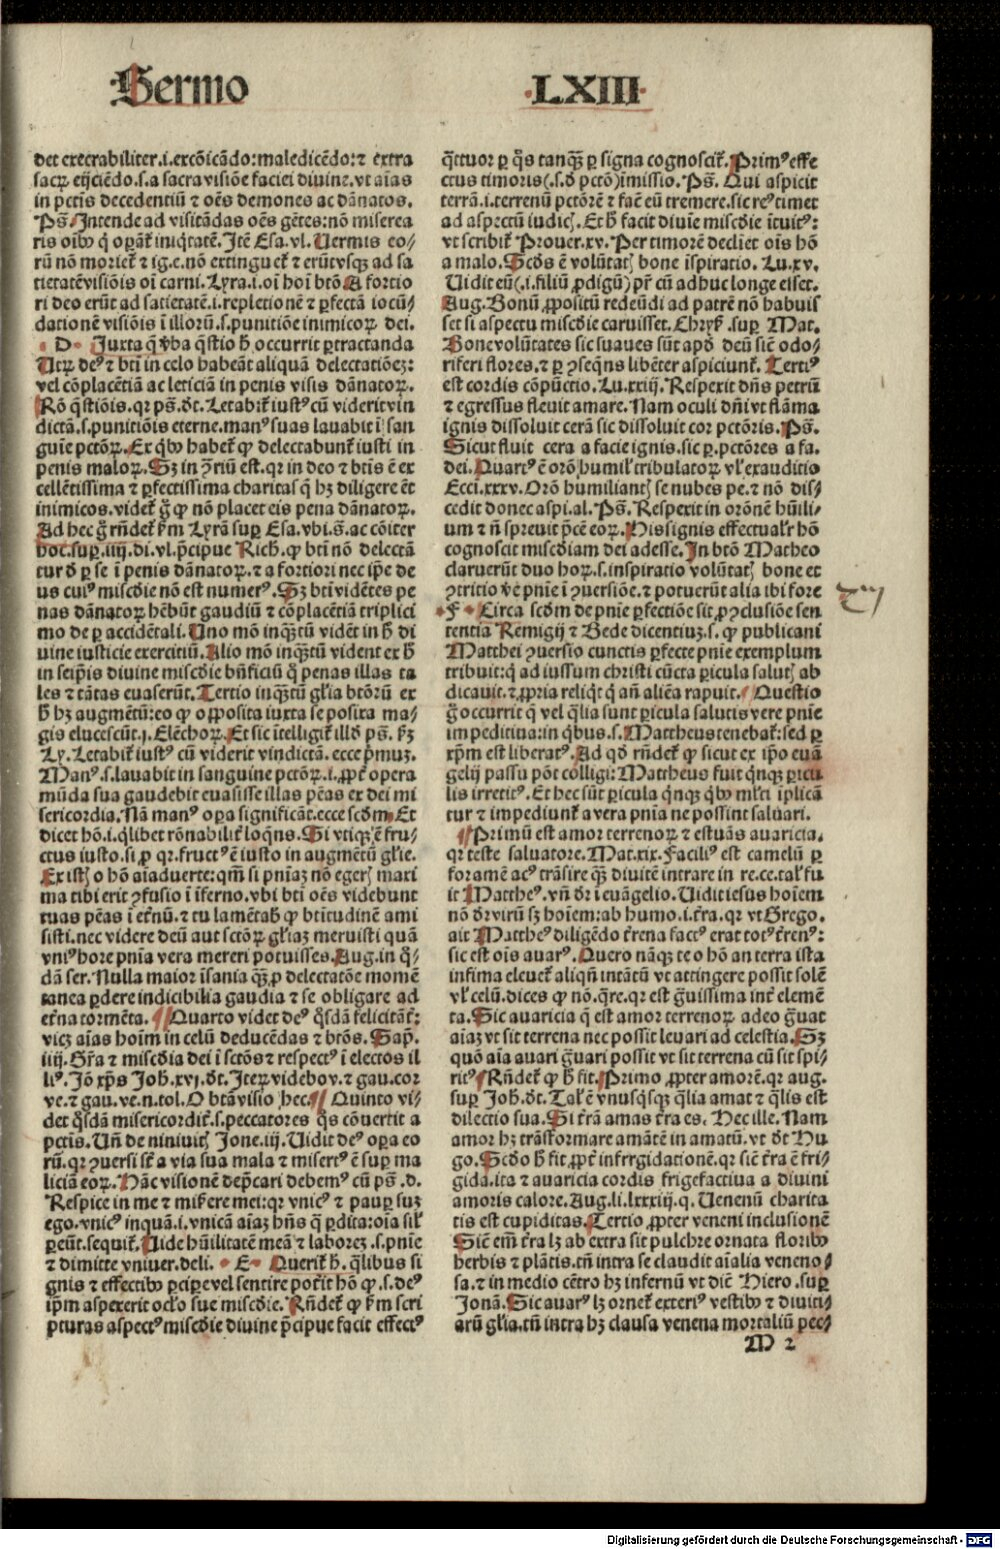 Sermo
LXIII
det execrabiliter.i.excōicādo:maledicēdo:⁊ extra
sacꝝ eijciēdo.s.a sacra visiōe faciei diuine.vt aīas
in pctīs decedentiū ⁊ oēs demones ac dānatos.
Ps̄. Intende ad visitādas oēs gētes:nō miserea
ris oībꝰ q̄ oꝑāt̄ iniq̇tatē. Itē Esa.vl. Uermis eo⸗
rū nō moriet̄ ⁊ ig.e.nō extinguet̄ ⁊ erūt vsqꝫ ad sa
tietatē visiōis oī carni. Lyra.i.oī hoī btō. A fortio
ri deo erūt ad satietatē.i.repletionē ⁊ ꝑfectā iocū⸗
dationē visiōis ī illorū.s.punitiōe inimicoꝝ dei.
D Iuxta q̄ v̄ba q̄stio h̄ occurrit ꝑtractanda
Utꝝ deꝰ ⁊ btī in celo habeāt aliquā delectatiōeꝫ:
vel cōplacētiā ac leticiā in penis visis dānatoꝝ.
Rō q̄stiōis.qr ps̄.dt̄. Letabit̄ iustꝰ cū viderit vin
dictā.s.punitiōis eterne.manꝰ suas lauabit ī san
guīe pctōꝝ. Ex q̇bꝰ habet̄ ꝙ delectabunt̄ iusti in
penis maloꝝ. Sꝫ in ꝯriū est.qr in deo ⁊ btīs ē ex
cellētissima ⁊ ꝑfectissima charitas q̄ hꝫ diligere ēt
inimicos.videt̄ g̊ ꝙ nō placet eis pena dānatoꝝ.
Ad hec g̊ rn̄det̄ ẜm Lyrā suꝑ Esa.vbi.s̄.ac cōiter
hoc.suꝑ.iiij.di.vl.p̄cipue Rich.ꝙ btī nō delectā
tur d̄ ꝑ se ī penis dānatoꝝ.⁊ a fortiori nec ip̄e de
us cuiꝰ miscd̄ie nō est numerꝰ. Sꝫ btī vidētes pe
nas dānatoꝝ hēbūt gaudiū ⁊ cōplacētiā triplici
mo de ꝑ accidētali. Uno mō inqꝫtū vidēt in h̄ di
uine iusticie exercitiū. Alio mō inqꝫtū vident ex h̄
in seip̄is diuine miscd̄ie bn̄ficiū q̄ penas illas ta
les ⁊ tātas euaserūt. Tertio inqꝫtū gl̄ia btōrū ex
h̄ hꝫ augmētū:eo ꝙ opposita iuxta se posita ma⸗
gis elucescūt.j. Elēchoꝝ. Et sic itelligit̄ illd̄ ps̄. ẜꝫ
Ly. Letabit̄ iustꝰ cū viderit vindictā.ecce pͥmuꝫ.
Manꝰ.s.lauabit in sanguine pctōꝝ.i.ꝓpt̄ opera
mūda sua gaudebit euasisse illas pēas ex dei mi
sericordia. Nā manꝰ oꝑa significāt.ecce scd̄m. Et
dicet hō.i.q̇libet rōnabilit̄ loq̄ns. Si vtiqꝫ ē fru⸗
ctus iusto.si ꝓ qr. fructꝰ ē iusto in augmētū gl̄ie.
Ex istꝭ o hō aīaduerte:qm̄ si pniaꝫ nō egerꝭ maxi
ma tibi erit ꝯfusio ī īferno.vbi btī oēs videbunt
tuas pēas ī et̄nū.⁊ tu lamētabꝭ ꝙ btītudinē ami
sisti.nec videre deū aut sctōꝝ gl̄iaꝫ meruisti quā
vniꝰ hore pnīa vera mereri potuisses. Aug.in q̇⸗
dā ser. Nulla maior īsania qꝫꝫ ꝓ delectatōe momē
tanea ꝑdere indicibilia gaudia ⁊ se obligare ad
et̄na tormēta. Quarto videt deꝰ q̇sdā felicitāt̄:
vicꝫ aīas hoīm in celū deducēdas ⁊ btōs. Sap̄.
iiij. Gr̄a ⁊ miscd̄ia dei ī sctōs ⁊ respectꝰ ī electos il
liꝰ. Iō xp̄s Joh.xvj.dt̄. Iteꝝ videbo v.⁊ gau.cor
ve.⁊ gau.ve.n.tol. O btā visio hec. Quinto vi⸗
det q̇sdā misericordit̄.s.peccatores q̇s cōuertit a
pctīs. Un̄ de niniuitꝭ Jone.iij. Uidit deꝰ oꝑa eo
rū.qr ꝯuersi st̄ a via sua mala ⁊ misertꝰ ē suꝑ ma
liciā eoꝝ. Hāc visionē dep̄cari debemꝰ cū ps̄.d.
Respice in me ⁊ mis̄ere mei:qr vnicꝰ ⁊ pauꝑ suꝫ
ego.vnicꝰ inquā.i.vnicā aīaꝫ hn̄s q̄ ꝑdita:oīa sil̄
ꝑeūt.sequit̄. Uide hūilitatē meā ⁊ laboreꝫ.s.pnīe
⁊ dimitte vniuer.deli. E Querit̄ h̄.q̇libus si
gnis ⁊ effectibꝰ ꝑcipe vel sentire pot̄it hō ꝙ.s.deꝰ
ip̄m aspexerit oclo sue miscd̄ie. Rn̄det̄ ꝙ ẜm scri
pturas aspectꝰ miscd̄ie diuine p̄cipue facit effectꝰ
q̄ttuor ꝑ q̄s tanqꝫ ꝑ signa cognoscit̄. Primꝰ effe
ctus timoris(.s.d̄ pctō)īmissio. Ps̄. Qui aspicit
terrā.i.terrenū pctōrē ⁊ fac̄ eū tremere.sic resꝰ timet
ad aspectū iudicꝭ. Et h̄ facit diuīe miscd̄ie ituitꝰ:
vt scribit̄ Prouer.xv. Per timorē declīet oīs hō
a malo. Scd̄s ē volūtatꝭ bone īspiratio. Lu.xv.
Uidit eū(.i.filiū ꝓdigū)pr̄ cū adhuc longe esset.
Aug. Bonū ꝓpositū redeūdi ad patrē nō habuis
set si aspectu miscd̄ie caruisset. Chryſ. suꝑ Mat.
Bone volūtates sic suaues sūt apd̄ deū siē odo⸗
riferi flores.⁊ ꝑ ꝯseq̄ns libēter aspiciunt̄. Tertiꝰ
est cordis cōpūctio. Lu.xxiij. Respexit dn̄s petrū
⁊ egressus fleuit amare. Nam oculi dn̄i vt flāma
ignis dissoluit cerā sic dissoluit cor pctōris. Ps̄.
Sicut fluit cera a facie ignis.sic ꝑ.pctōres a fa.
dei. Quartꝰ ē orō humil̄ tribulatoꝝ vl̄ exauditio
Ecci.xxxv. Orō humiliantꝭ se nubes pe.⁊ nō dis⸗
cedit donec aspi.al. Ps̄. Respexit in orōnē hūili⸗
um ⁊ n̄ spreuit p̄cē eoꝝ. His signis effectualr̄ hō
cognoscit miscd̄iam dei adesse. In btō Matheo
claruerūt duo hoꝝ.s.inspiratio volūtatꝭ bone et
ꝯtritio v̄e pnīe ī ꝯuersiōe.⁊ potuerūt alia ibi fore
F Circa scd̄m de pnīe ꝑfectiōe sit ꝓ ꝯclusiōe sen
tentia Remigij ⁊ Bede dicentiuꝫ.s.ꝙ publicani
Matthei ꝯuersio cunctis ꝑfecte pnīe exemplum
tribuit:q̄ ad iussum christi cūcta ꝑicula salutꝭ ab
dicauit.⁊ ꝓpria reliq̇t q̄ an̄ aliēa rapuit. Questio
g̊ occurrit q̄ vel q̄lia sunt ꝑicula salutis vere pnīe
impeditiua:in q̇bus.s. Mattheus tenebat̄:sed ꝑ
xp̄m est liberatꝰ. Ad qd̄ rn̄det̄ ꝙ sicut ex ip̄o euā
gelij passu pōt colligi: Mattheus fuit q̇nqꝫ ꝑicu
lis irretitꝰ. Et hec sūt ꝑicula q̇nqꝫ q̇bꝰ ml̄ti īplicā
tur ⁊ impediunt̄ a vera pnīa ne possint saluari.
Primū est amor terrenoꝝ ⁊ estuās auaricia.
qr teste saluatore. Mat.xix. Faciliꝰ est camelū ꝑ
foramē acꝰ trāsire qꝫ diuitē intrare in re.ce.tal̄ fu
it Mattheꝰ.vn̄ dr̄ ī euāgelio. Uidit iesus hoīem
nō dr̄ virū sꝫ hoīem:ab humo.i.t̄ra.qr vt Grego.
ait Mattheꝰ diligēdo t̄rena factꝰ erat totꝰ t̄renꝰ:
sic est oīs auarꝰ. Quero nāqꝫ te o hō an terra ista
infima eleuet̄ aliqn̄ intātū vt attingere possit solē
vl̄ celū.dices ꝙ nō.q̄re.qr est g̊uissima int̄ elemē
ta. Sic auaricia q̄ est amor terrenoꝝ adeo g̊uat
aīaꝫ vt sit terrena nec possit leuari ad celestia. Sꝫ
quō aīa auari g̊uari possit vt sit terrena cū sit spi⸗
ritꝰ Rn̄det̄ ꝙ h̄ fit. Primo ꝓpter amorē.qr aug.
suꝑ Joh.dt̄. Tal̄ ē vnusq̇sqꝫ q̄lia amat ⁊ q̄lis est
dilectio sua. Si t̄rā amas t̄ra es. Hec ille. Nam
amor hꝫ trāsformare amātē in amatū.vt dt̄ Hu
go. Scd̄o h̄ fit.ꝓpt̄ infrigidationē.qr siē t̄ra ē fri⸗
gida.ita ⁊ auaricia cordis frigefactiua a diuini
amoris calore. Aug.li.lxxxiij.q. Uenenū charita
tis est cupiditas. Tertio ꝓpter veneni inclusionē
Siē em̄ t̄ra lꝫ ab extra sit pulchre ornata floribꝰ
herbis ⁊ plātis.tn̄ intra se claudit aīalia veneno⸗
sa.⁊ in medio cētro hꝫ infernū vt diē Hiero.suꝑ
Jonā. Sic auarꝰ lꝫ ornet̄ exteriꝰ vestibꝰ ⁊ diuiti⸗
arū gl̄ia.tn̄ intra hꝫ clausa venena mortaliū pec⸗
M 2
Digitalisierung gefördert durch die Deutsche Forschungsgemeinschaft - DFG